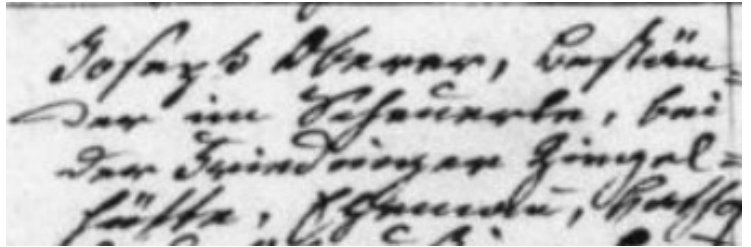 Joseph Oberer, Bestän-
der im Scheuerle, bei
der Friedinger Ziegel=
hütte, Ehemann, Kathol